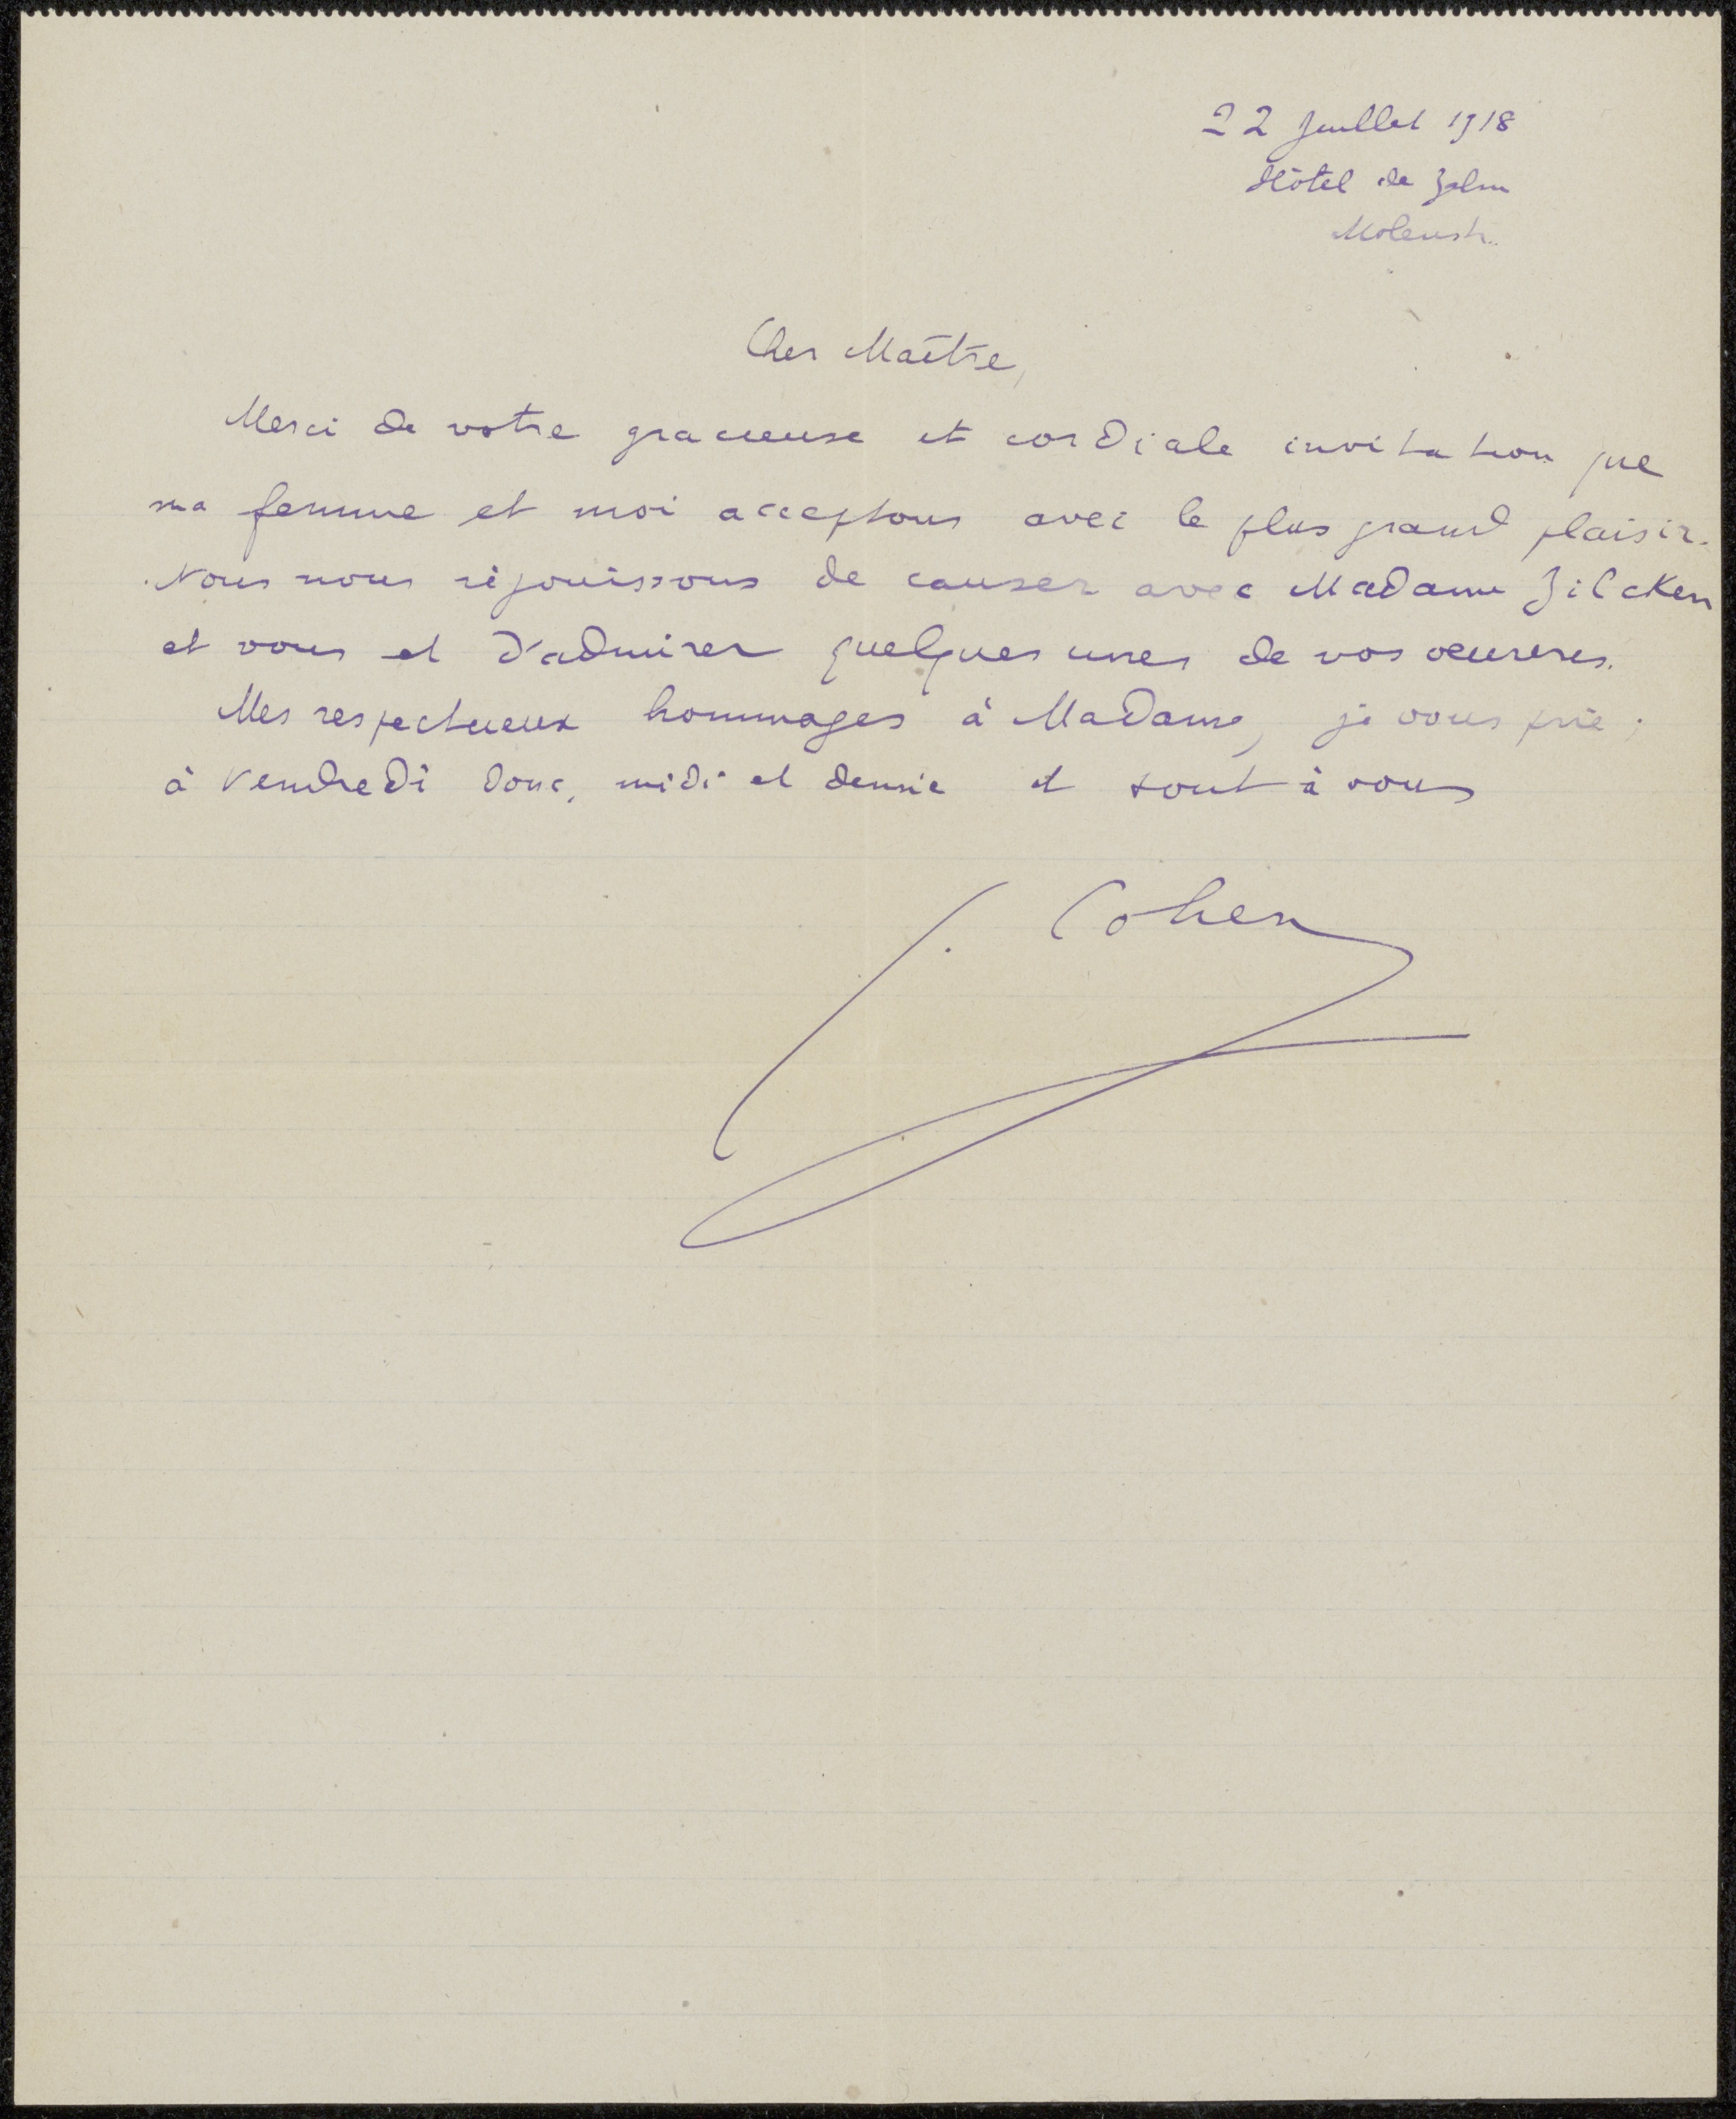 22 Juillet 1918
Hôtel de Zalm
Molenstr.
Cher Maître,
Merci de votre gracieuse et cordiale invitation que
ma femme et moi acceptons avec le plus grand plaisir.
Nous nous réjouissons de causer avec Madame Zilcken
et vous et d'admirer quelques unes de vos oeuvres.
Mes respectueux hommages à Madame, je vous prie ;
à Vendredi donc, midi et demie et tout à vous
Cohen